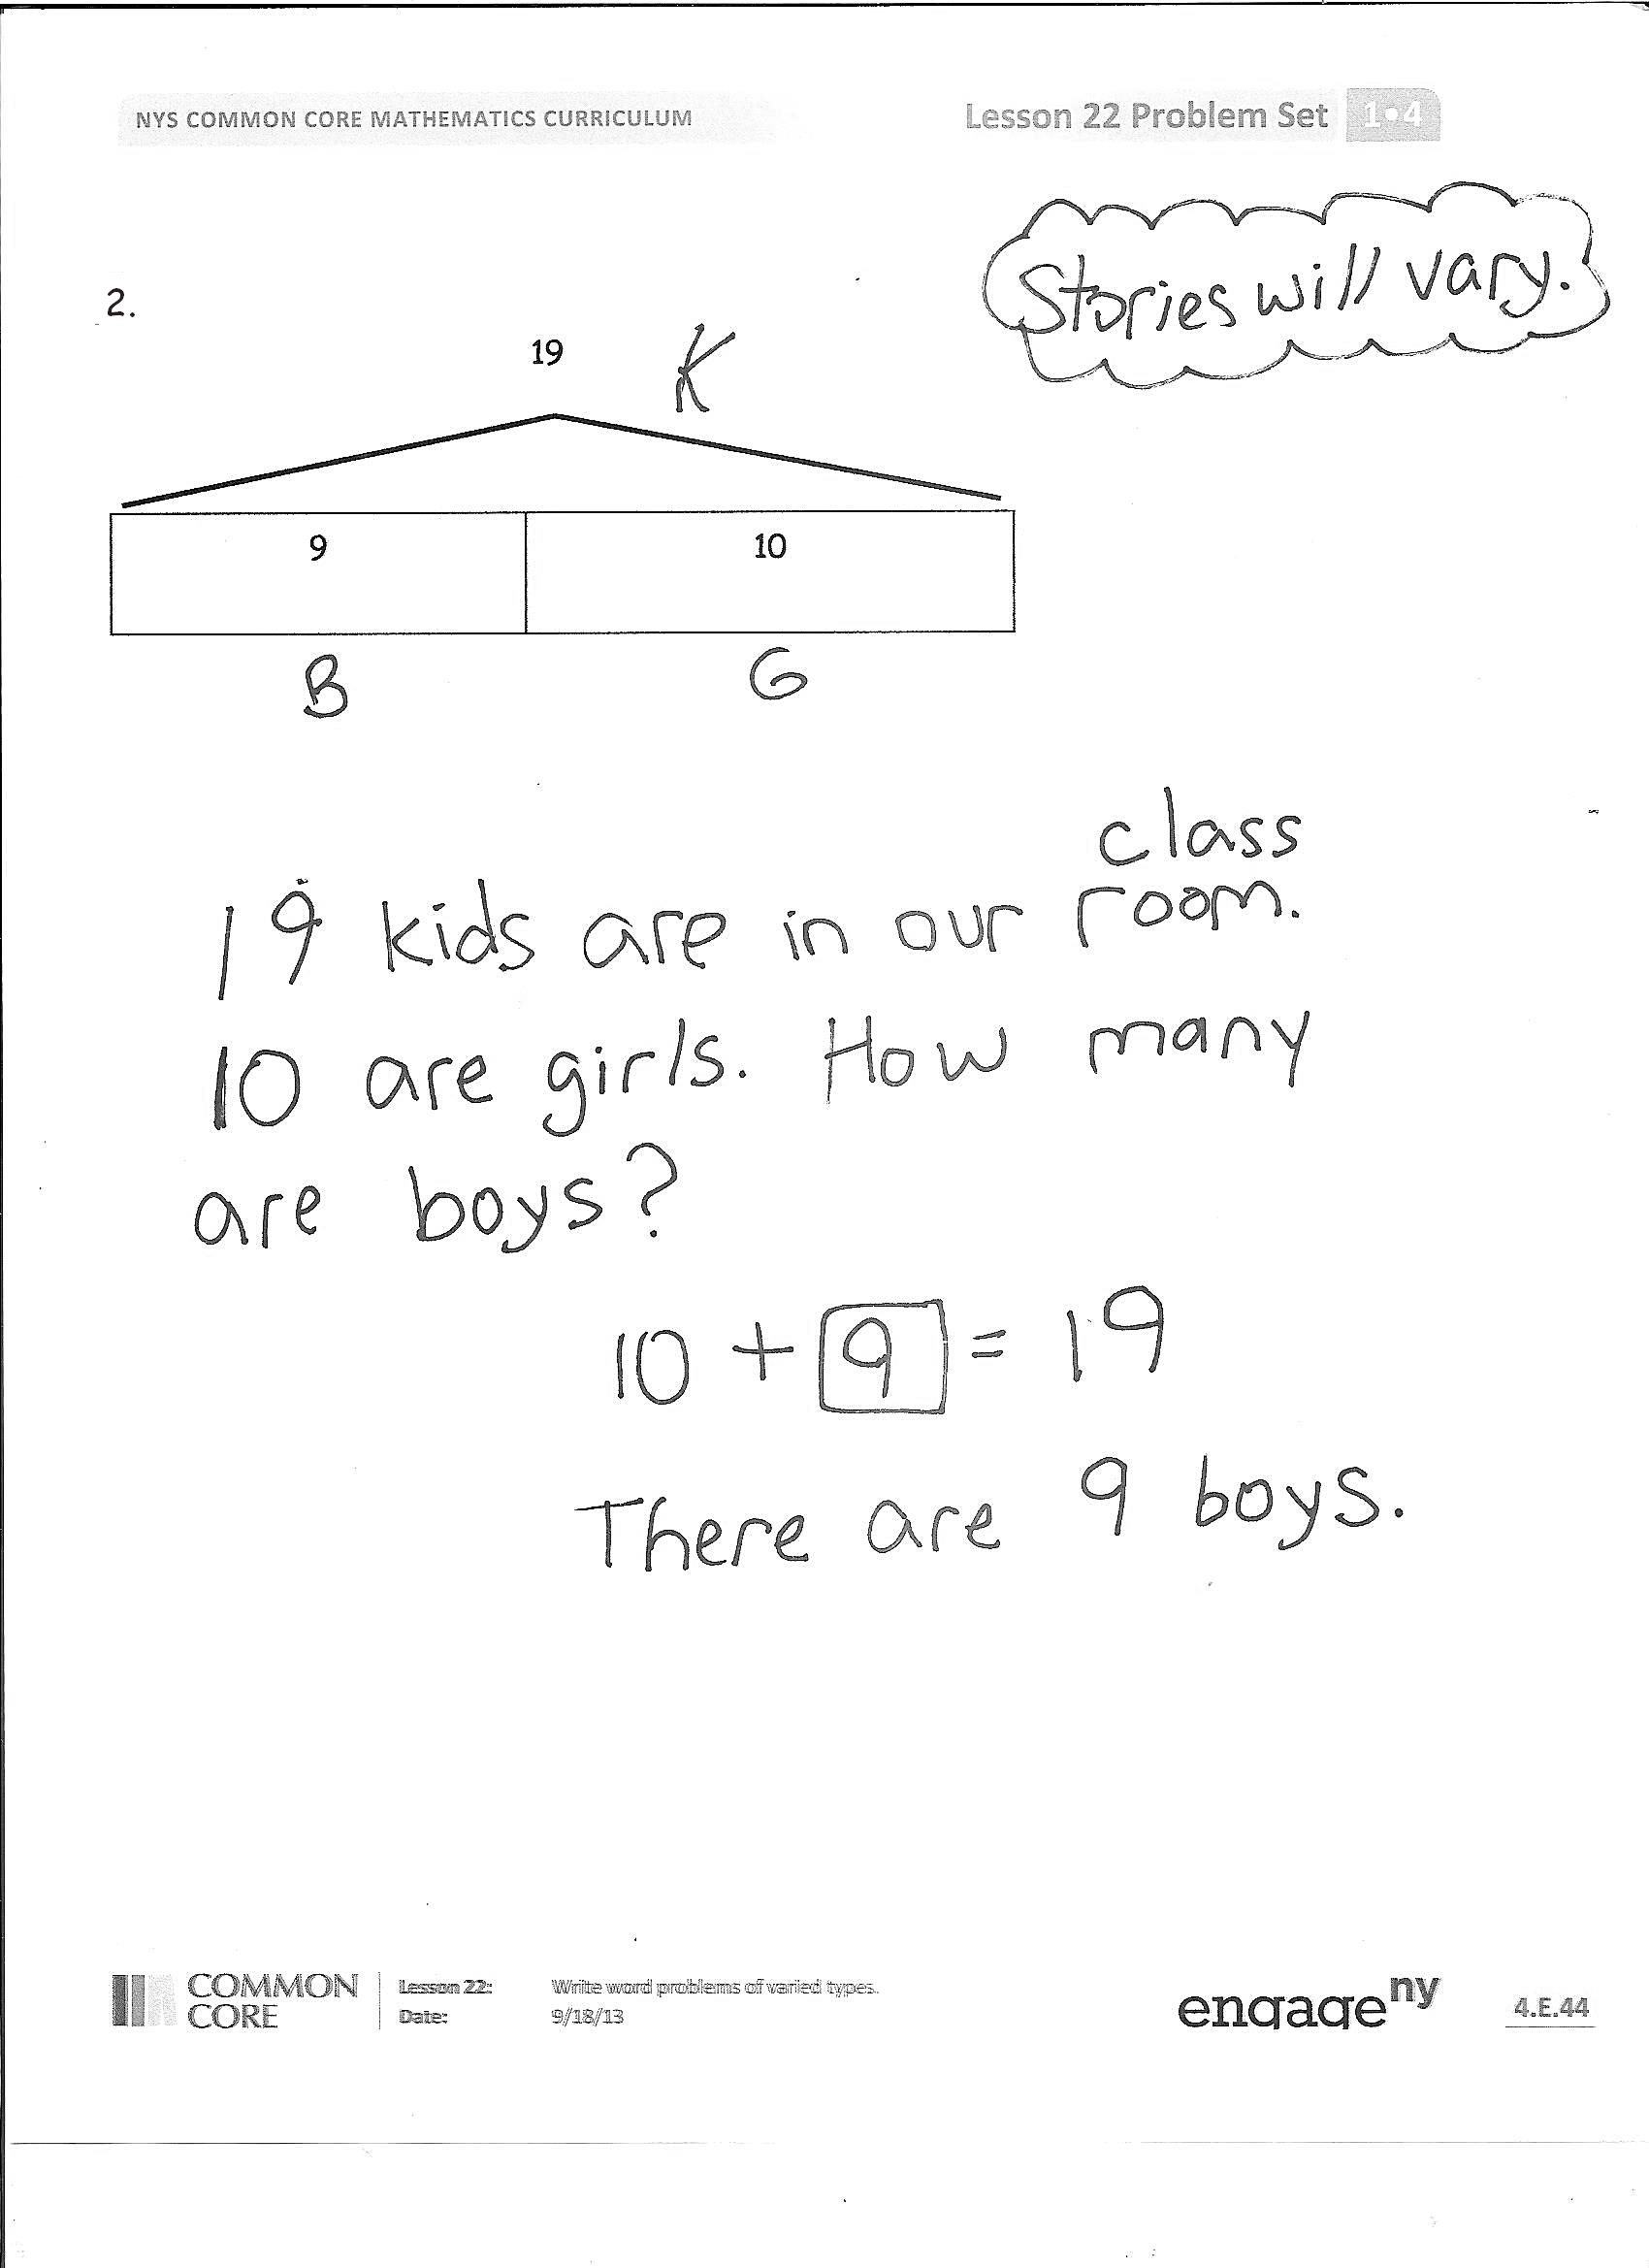 NYS COMMON CORE MATHEMATICS CURRICULUM
Lesson 22 Problem Set 1•4
Stories will vary.
2.
19 K
9 10
B G
class
19 kids are in our room.
10 are girls. How many
are boys?
10 + 9 = 19
There are 9 boys.
COMMON CORE
Lesson 22: Write word problems of varied types.
Date: 9/18/13
engage ny
4.E.44